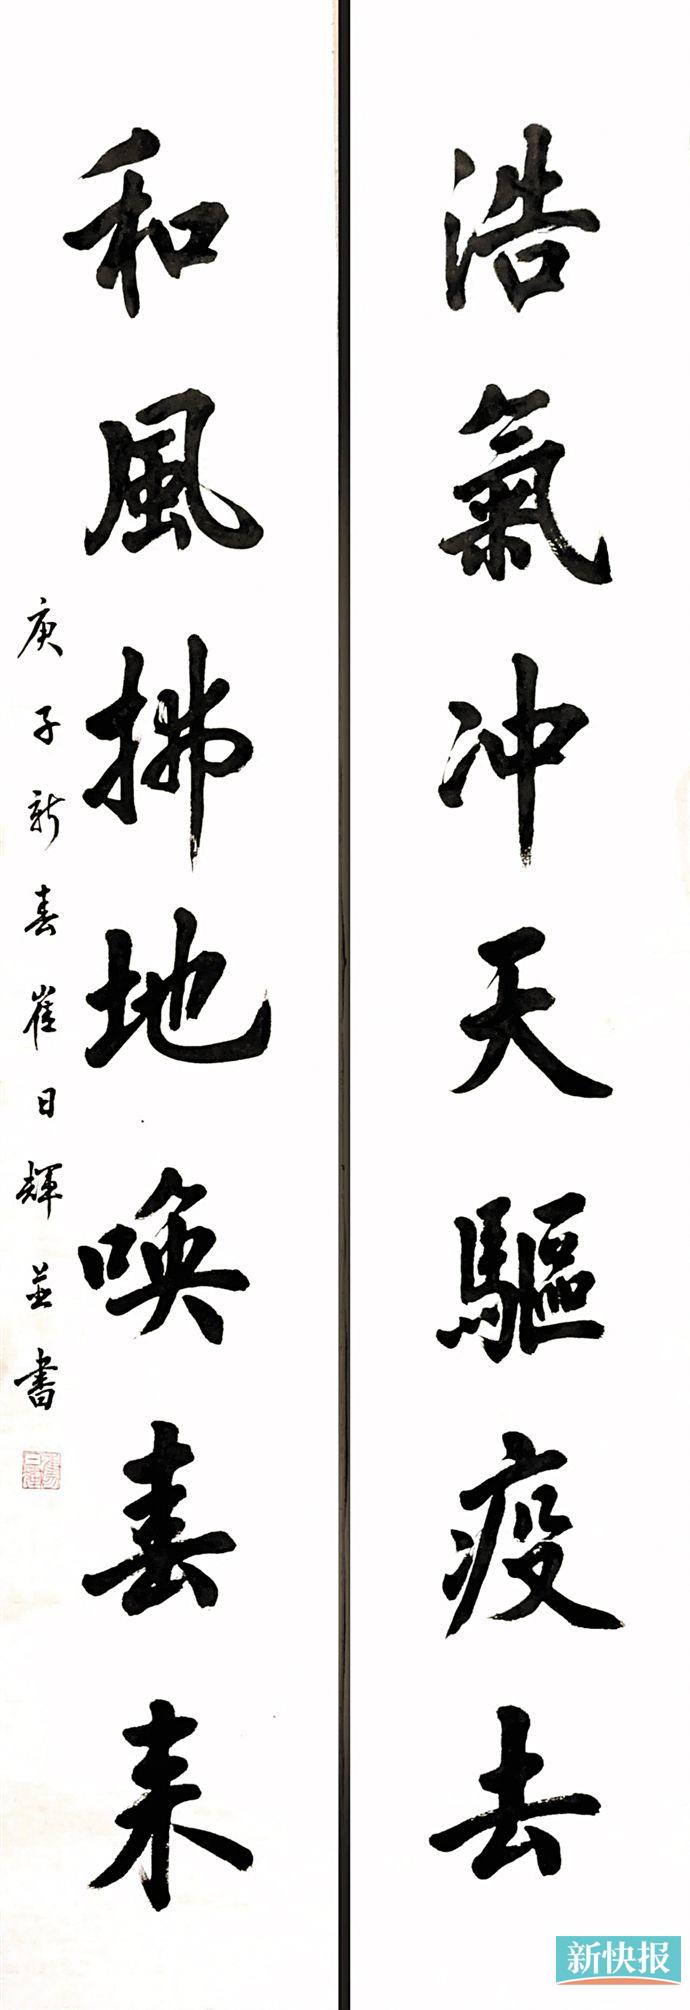 浩氣冲天驅疫去
和風拂地唤春来
庚子新春崔日輝並書
新快报